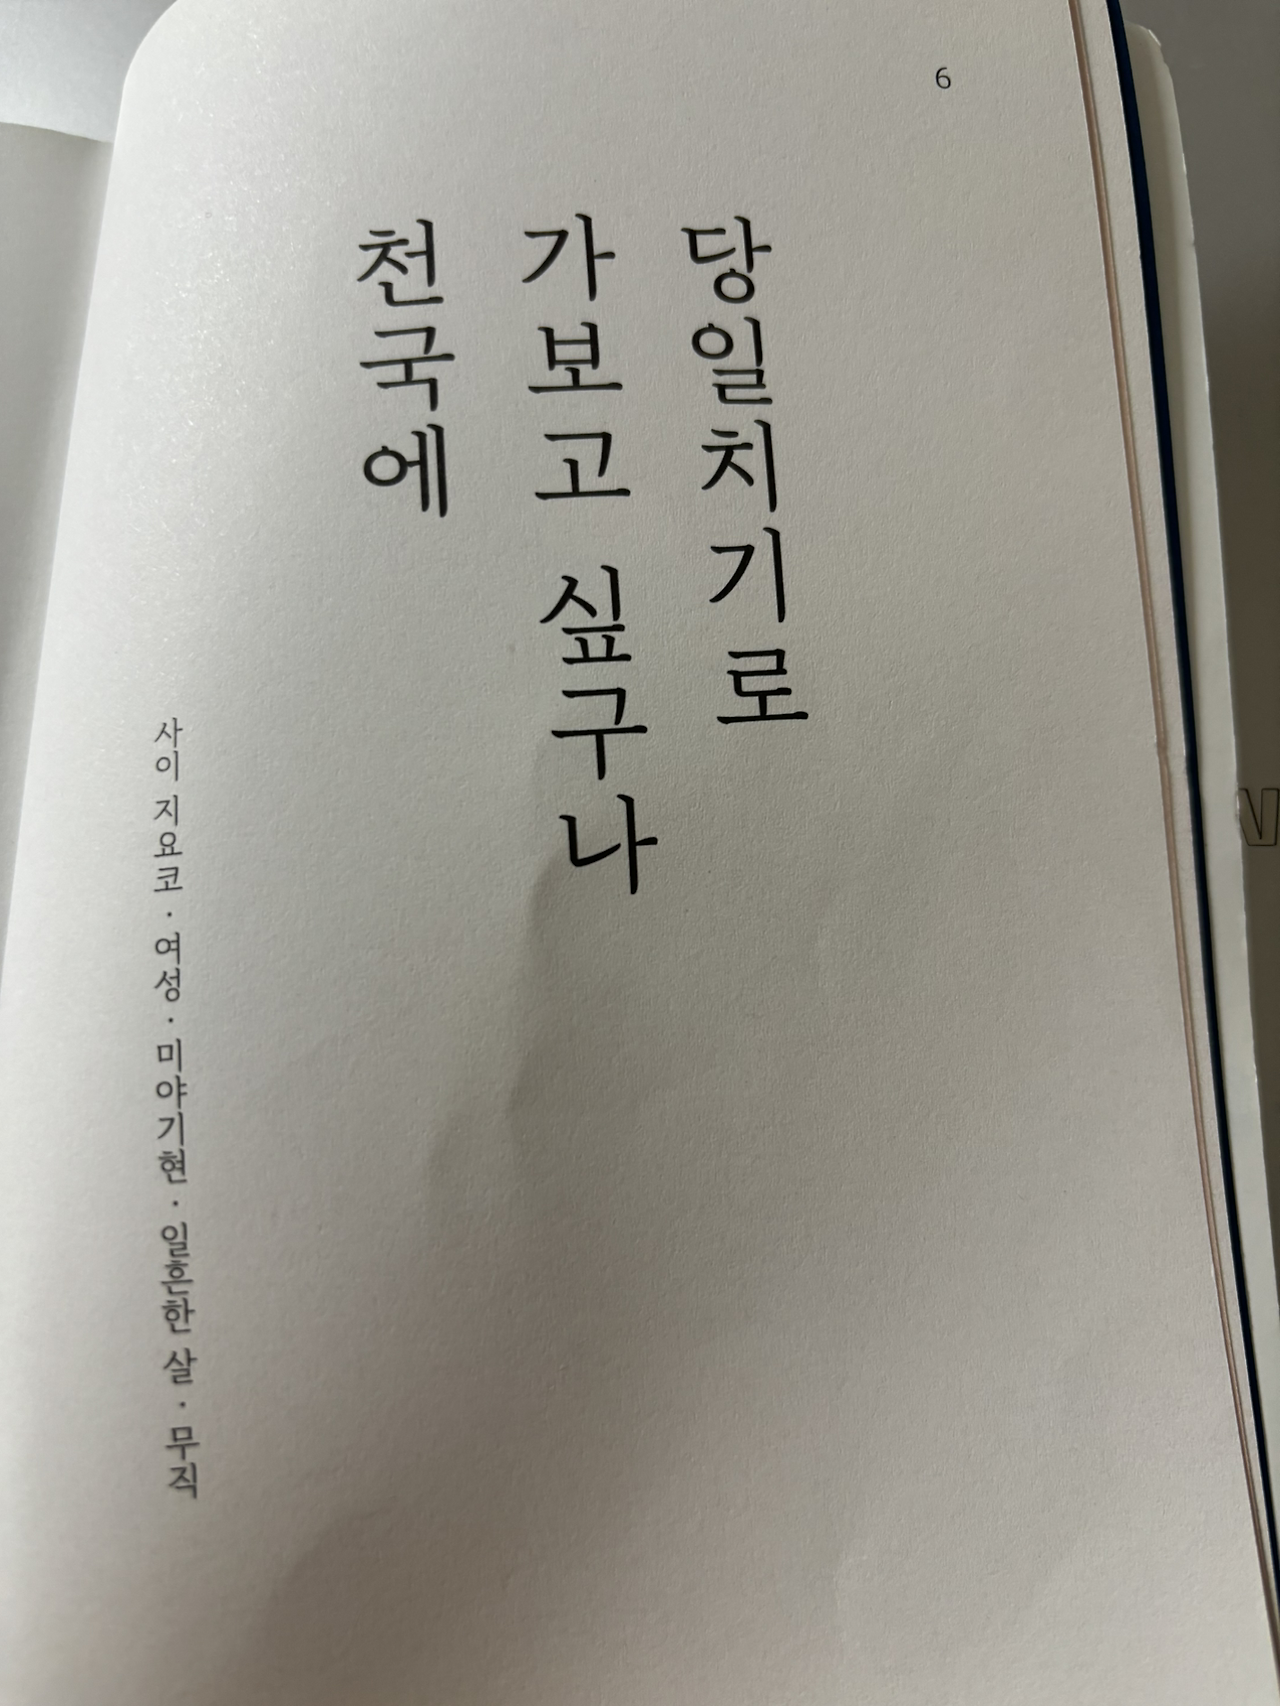 6
당일치기로
가보고 싶구나
천국에
사이 지요코 · 여성 · 미야기현 · 일흔한 살 · 무직